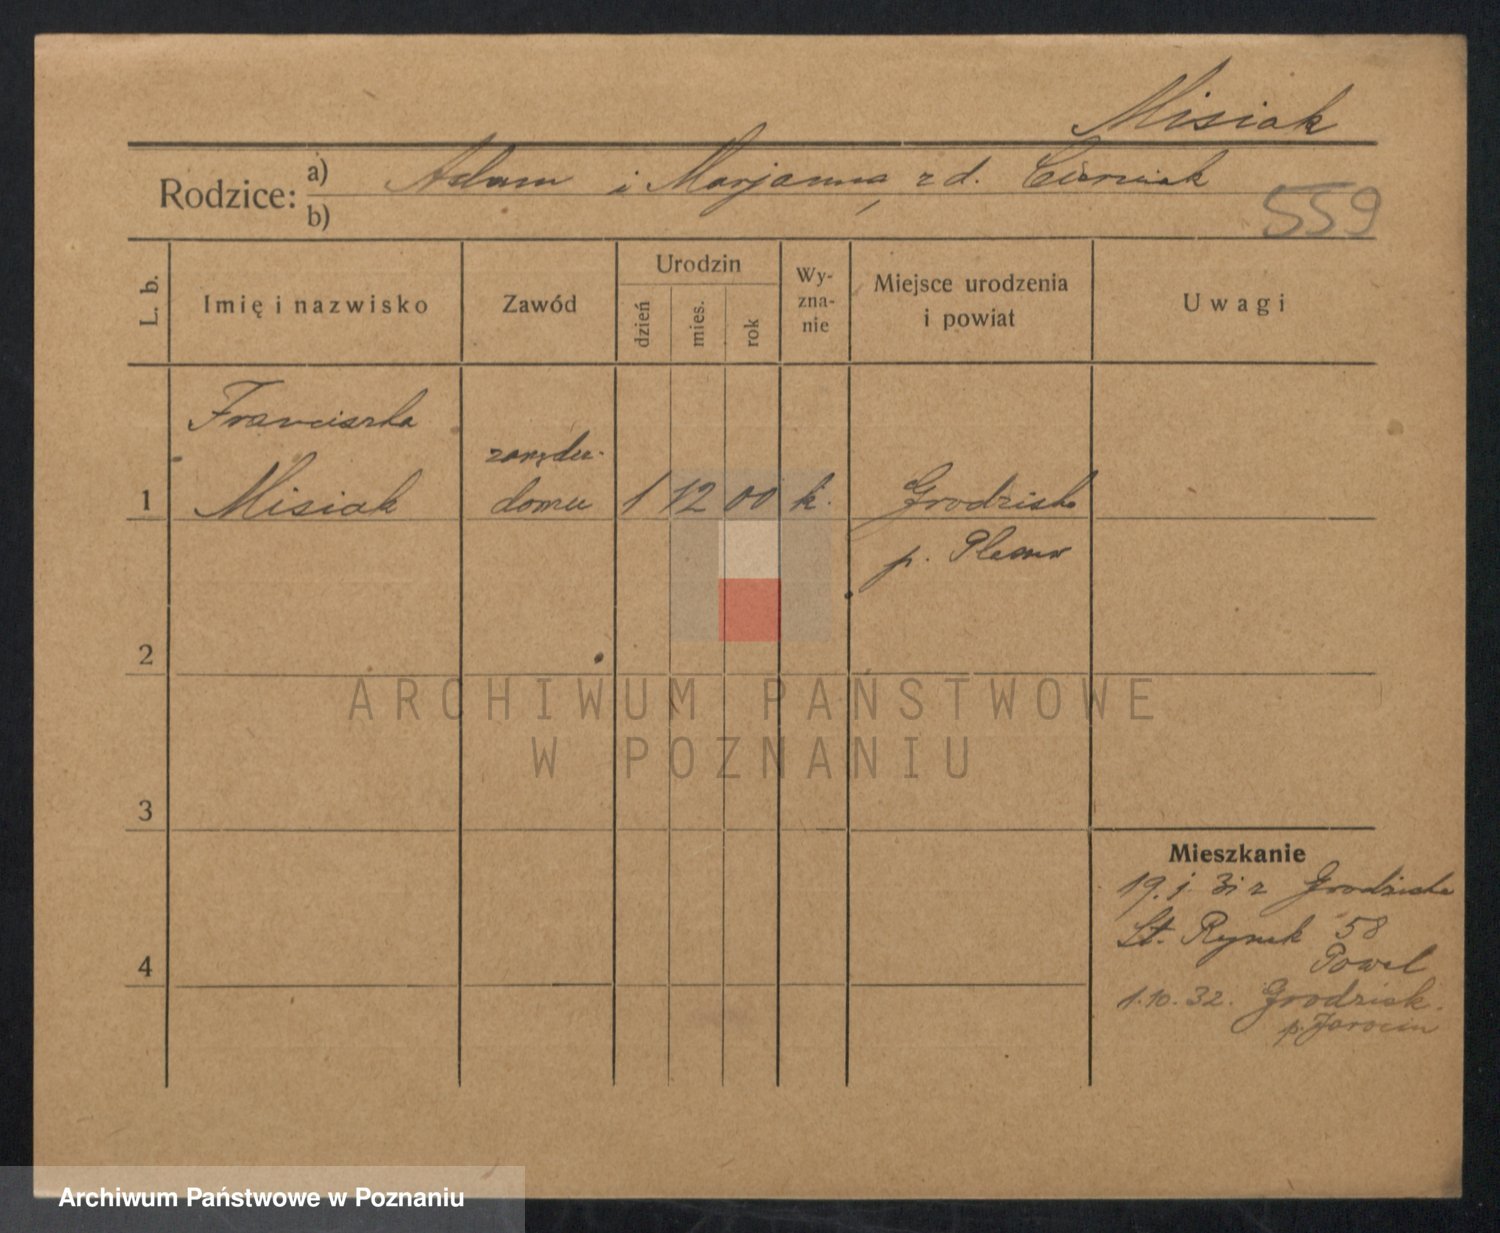 Misiak
Rodzice: a) Adam i Marjanna z d. Cierniak
b)
559
L. b.
Imię i nazwisko
Zawód
Urodzin
dzień
mies.
rok
Wy-
zna-
nie
Miejsce urodzenia
i powiat
Uwagi
Franciszka
1 Misiak domu 1 12 00 k. Grodzisko
p. Pleszew
2
3
4
Mieszkanie
19. 31 z Grodziska
St. Rynek 58
1.10.32. Grodzisk.
p. Jarocin
ARCHIWUM PAŃSTWOWE
W POZNANIU
Archiwum Państwowe w Poznaniu